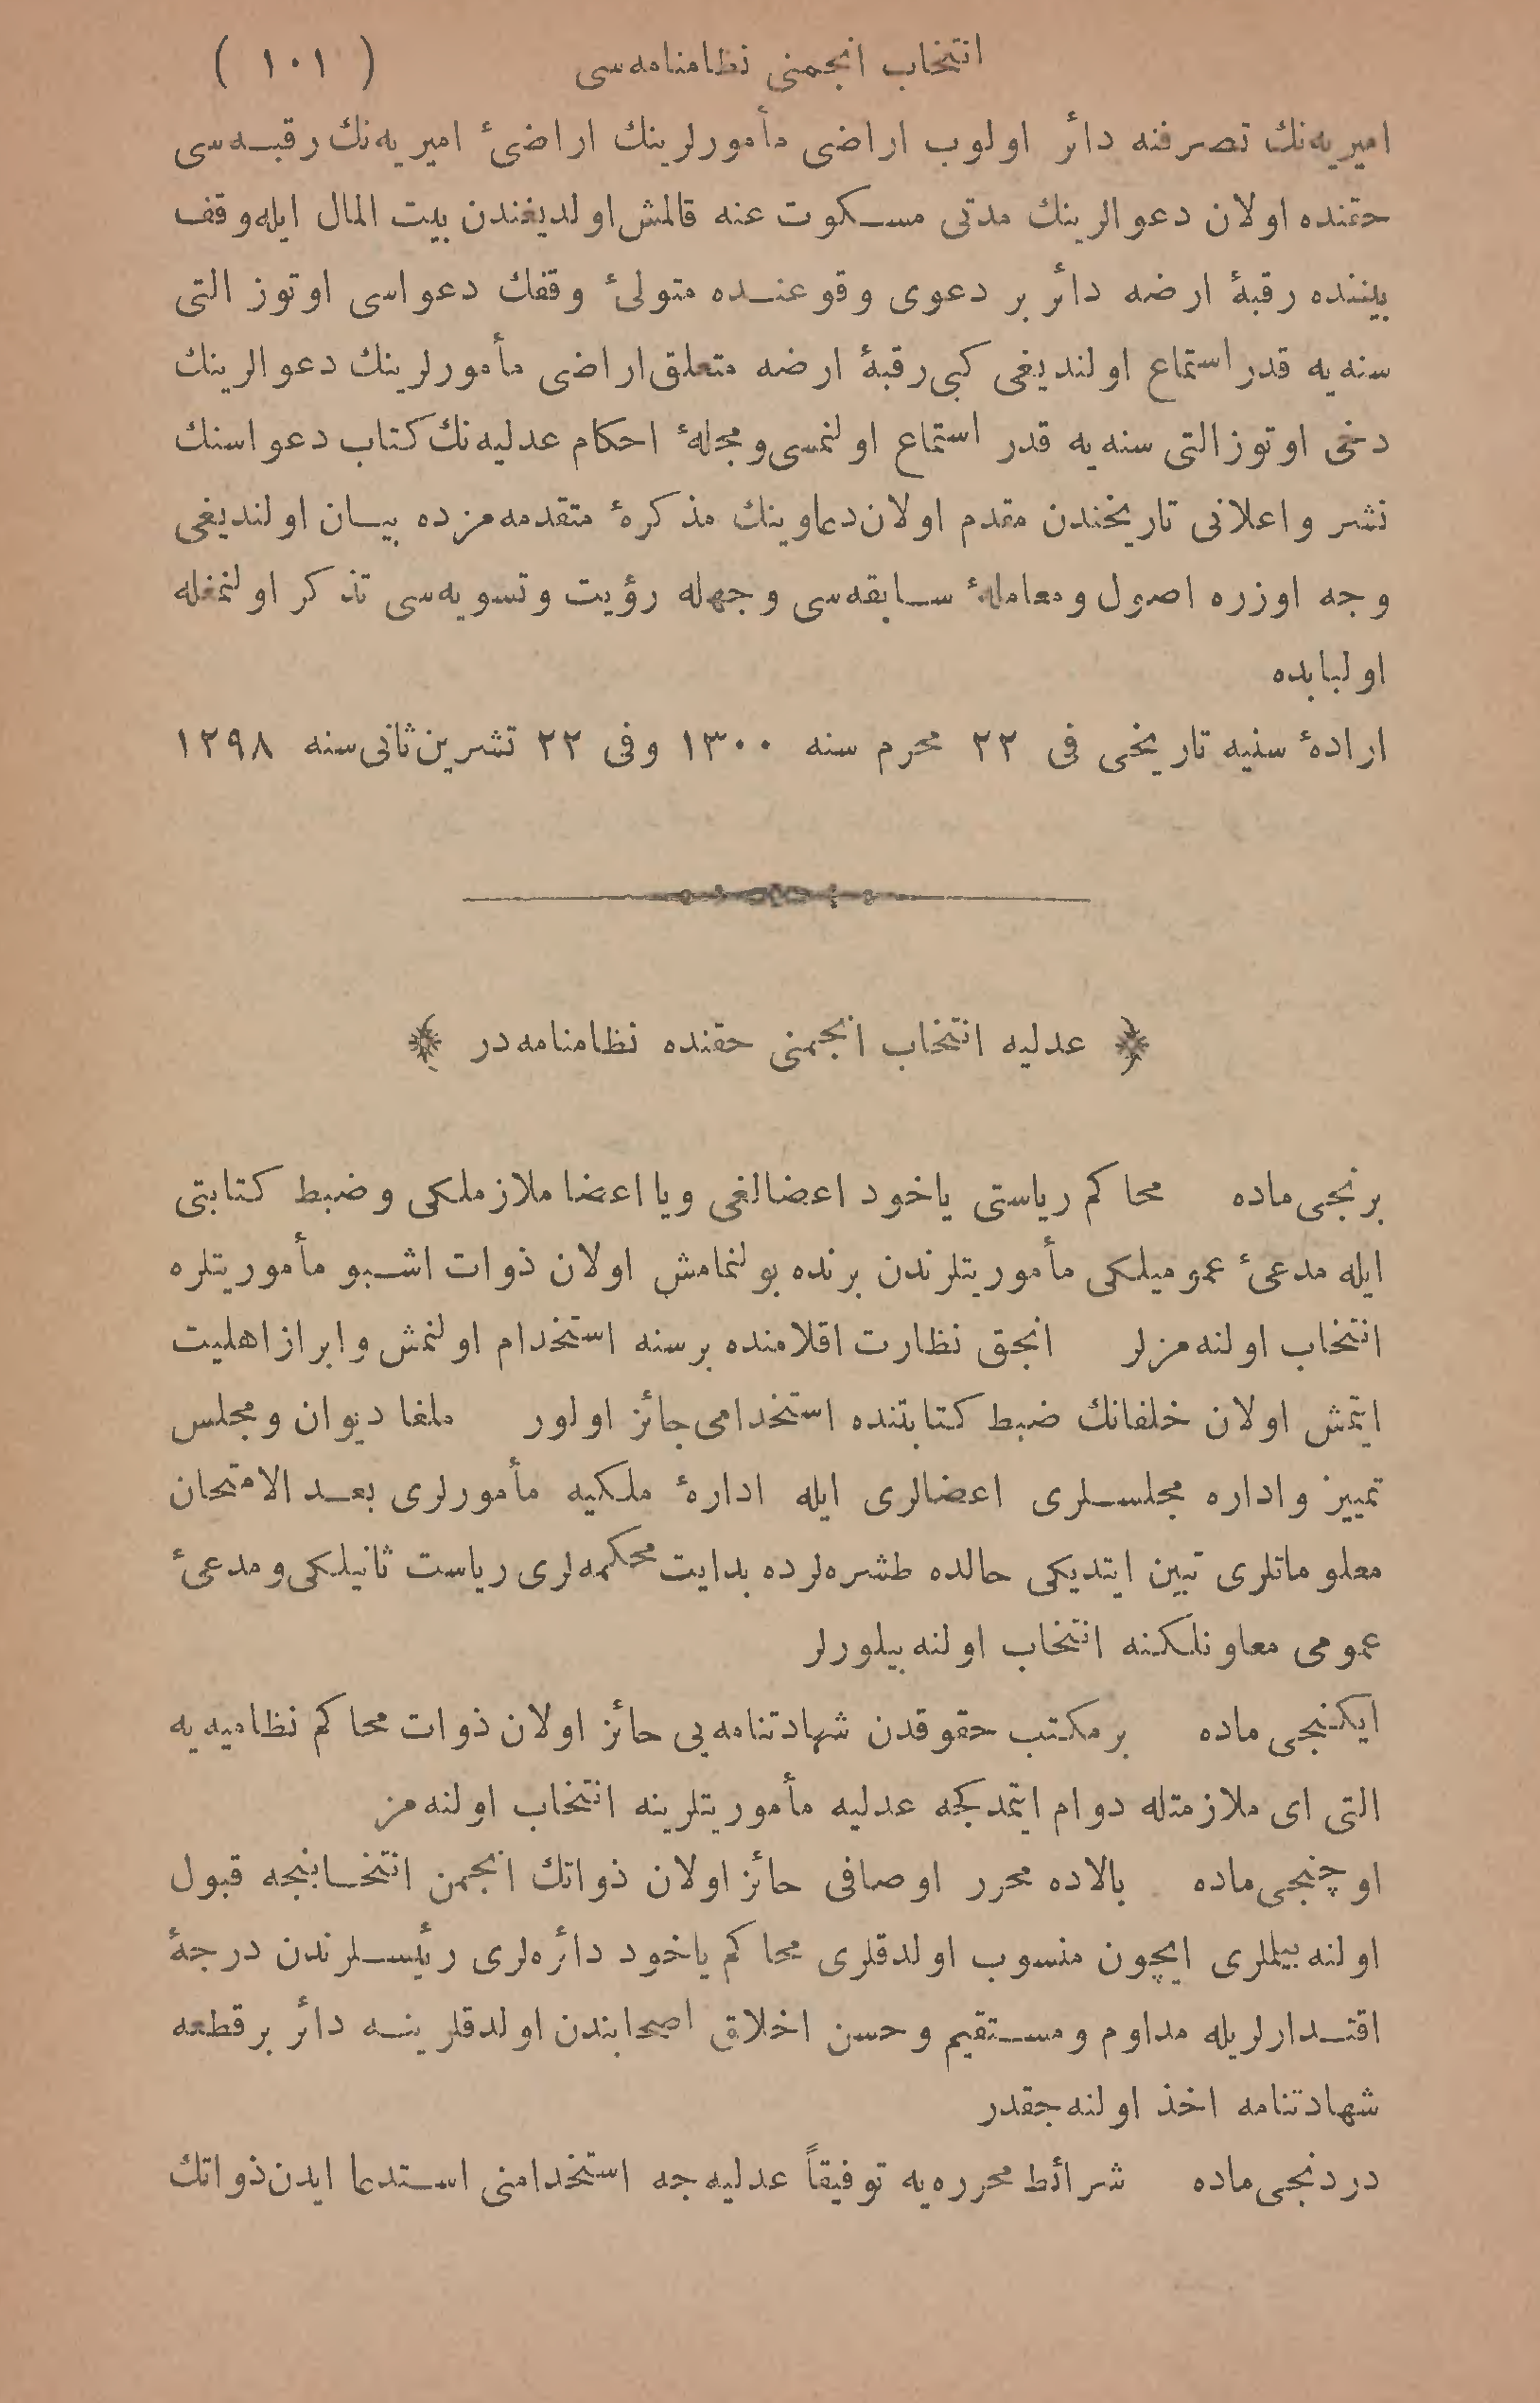 انتخاب انجمنی نظامنامه‌سی ( ۱۰۱ )
امیریه‌نك تصرفنه دائر اولوب اراضی مأمورلرینك اراضیٔ امیریه‌نك رقبه‌سی
حقنده اولان دعوالرینك مدتی مسكوت عنه قالمش اولدیغندن بیت المال ایله وقف
بیننده رقبهٔ ارضه دائر بر دعوی وقوعنده متولیٔ وقفك دعواسی اوتوز التی
سنه‌یه قدر استماع اولندیغی كبی رقبهٔ ارضه متعلق اراضی مأمورلرینك دعوالرینك
دخی اوتوز التی سنه‌یه قدر استماع اولنمسی و مجلهٔ احكام عدلیه‌نك كتاب دعواسنك
نشر و اعلانی تاریخندن مقدم اولان دعاوینك مذكرهٔ متقدمه‌مزده بیان اولندیغی
وجه اوزره اصول و معاملهٔ سابقه‌سی وجهله رؤیت و تسویه‌سی تذكر اولنمغله
اولبابده
ارادهٔ سنیه تاریخی فی ۲۳ محرم سنه ۱۳۰۰ وفی ۲۲ تشرین ثانی سنه ۱۲۹۸
﴿ عدلیه انتخاب انجمنی حقنده نظامنامه‌در ﴾
برنجی ماده محاكم ریاستی یاخود اعضالغی ویا اعضا ملازملكی وضبط كتابتی
ایله مدعیٔ عمومیلكی مأموریتلرندن برنده بولنمامش اولان ذوات اشبو مأموریتلره
انتخاب اولنه‌مزلر انجق نظارت اقلامنده بر سنه استخدام اولنمش وابراز اهلیت
ایتمش اولان خلفانك ضبط كتابتنده استخدامی جائز اولور ملغا دیوان ومجلس
تمییز واداره مجلسلری اعضالری ایله ادارهٔ ملكیه مأمورلری بعد الامتحان
معلوماتلری تبین ایتدیكی حالده طشره‌لرده بدایت محكمه‌لری ریاست ثانیلكی ومدعیٔ
عمومی معاونلكنه انتخاب اولنه‌بیلورلر
ایكنجی ماده بر مكتب حقوقدن شهادتنامه‌یی حائز اولان ذوات محاكم نظامیه‌یه
التی ای ملازمتله دوام ایتمدكجه عدلیه مأموریتلرینه انتخاب اولنه‌مز
اوچنجی ماده بالاده محرر اوصافی حائز اولان ذواتك انجمن انتخابنجه قبول
اولنه‌بیلملری ایچون منسوب اولدقلری محاكم یاخود دائره‌لری رئیسلرندن درجهٔ
اقتدارلریله مداوم ومستقیم وحسن اخلاق اصحابندن اولدقلرینه دائر بر قطعه
شهادتنامه اخذ اولنه‌جقدر
دردنجی ماده شرائط محرره‌یه توفیقاً عدلیه‌جه استخدامنی استدعا ایدن ذواتك